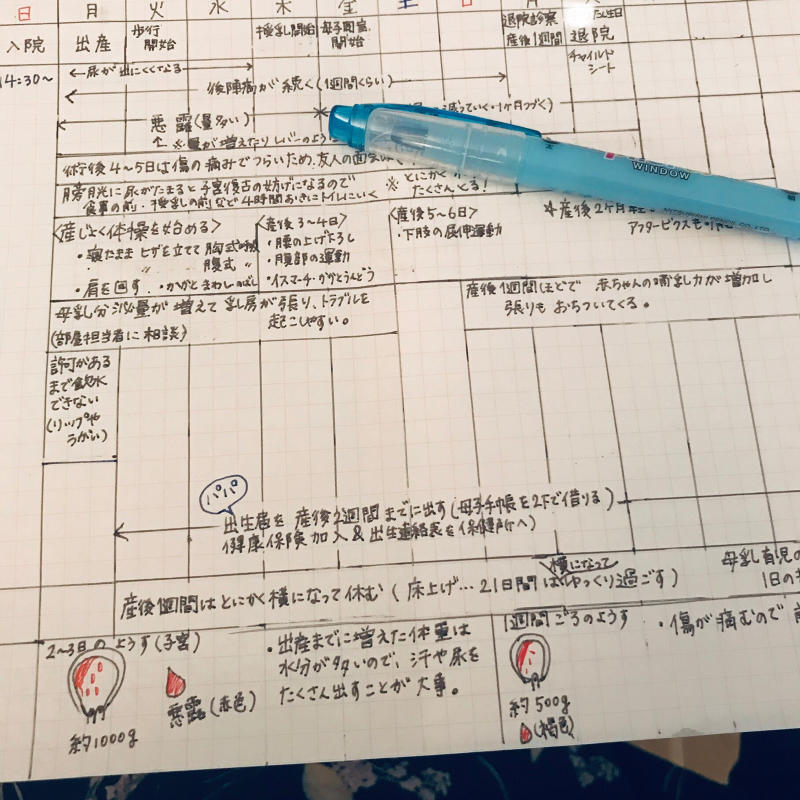 日 月 火 水 木 金 土 日 月 火
入院 出産 歩行開始 授乳開始 母子同室開始 退院診察 産後1週間 退院
チャイルドシート
14:30~
尿が出にくくなる
後陣痛が続く(1週間くらい)
悪露(量多い) 減っていく・1ヶ月つづく)
↑ ※量が増えたりレバーのよう
術後4~5日は傷の痛みでつらいため、友人の面会は
膀胱に尿がたまると子宮復古の妨げになるので
食事の前・授乳の前など4時間おきにトイレにいく
※ とにかく
たくさんとる!
<産じょく体操を始める>
・寝たまま ヒザを立てて 胸式呼吸
〃 〃 腹式 〃
・肩を回す ・かかとまわし・のばし
<産後3~4日>
・腰の上げ下ろし
・腹部の運動
・イスマーチ・かかとうんどう
<産後5~6日>
・下肢の屈伸運動
産後2ヶ月
アフタービクスも
WINDOW
母乳分泌量が増えて乳房が張り、トラブルを
起こしやすい。
(部屋担当者に相談)
産後1週間ほどで 赤ちゃんの哺乳力が増加し
張りもおちついてくる。
許可がある
まで飲水
できない
(リップや
うがい)
パパ
出生届を産後2週間までに出す(母子手帳を2下で借りる)
健康保険加入&出生連絡表を保健所へ)
横になって
産後1週間はとにかく横になって休む(床上げ…21日間はゆっくり過ごす)
母乳育児の
1日の
2~3日のようす(子宮)
約1000g
悪露(赤色)
・出産までに増えた体重は
水分が多いので、汗や尿を
たくさん出すことが大事。
1週間ごろのようす
約500g
(褐色)
・傷が痛むので